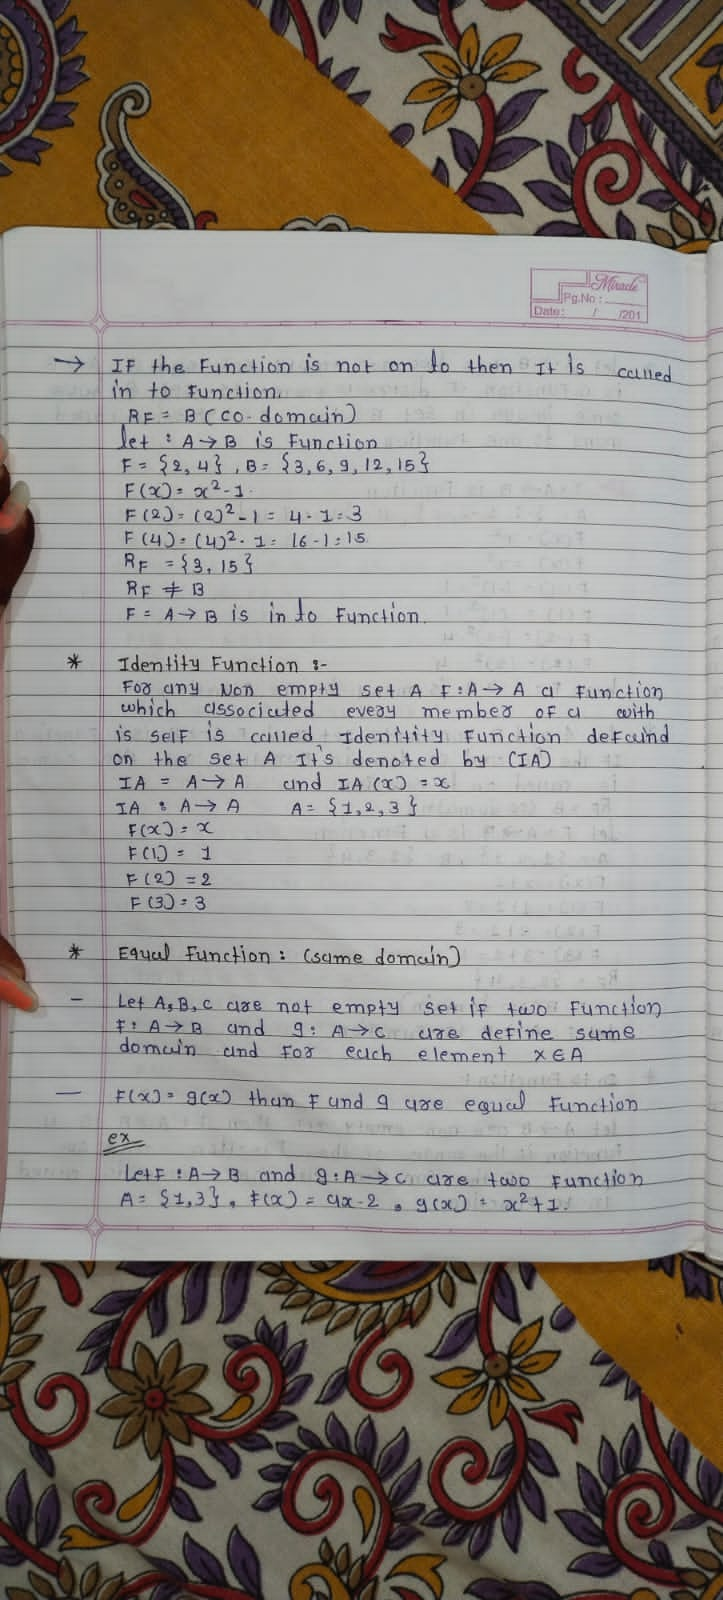 Miracle
Pg.No :
Date: / /201
→ IF the Function is not on to then It is called
in to Function.
RF = B (co-domain)
let : A → B is Function
F = {2, 4} , B = {3, 6, 9, 12, 15}
F(x) = x² - 1.
F(2) = (2)² - 1 = 4 - 1 = 3
F(4) = (4)² - 1 = 16 - 1 = 15
RF = {3, 15}
RF ≠ B
F = A → B is in to Function.
* Identity Function :-
For any Non empty set A F : A → A a Function
which associated every member of a with
is self is called Identitity Function defaind
on the set A It's denoted by (IA)
IA = A → A and IA (x) = x
IA : A → A A = {1, 2, 3}
F(x) = x
F(1) = 1
F(2) = 2
F(3) = 3
* Equal Function : (same domain)
- Let A, B, C are not empty set if two Function
F : A → B and g : A → C are define same
domain and For each element x ∈ A
- F(x) = g(x) than F and g are equal Function
ex
Let F : A → B and g : A → C are two Function
A = {1, 3} , F(x) = 4x - 2 , g(x) = x² + 1.